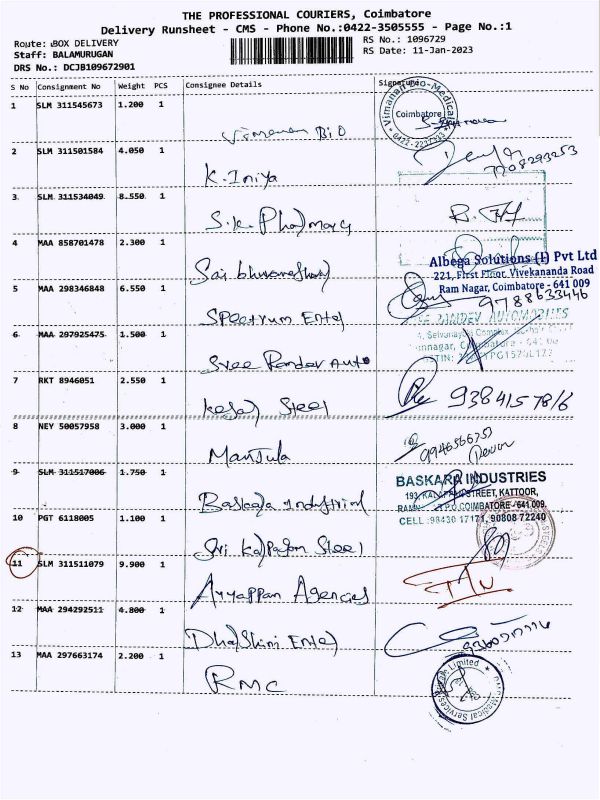 THE PROFESSIONAL COURIERS, Coimbatore
Delivery Runsheet - CMS - Phone No.:0422-3505555 - Page No.:1
Route: BOX DELIVERY
RS No.: 1096729
Staff: BALAMURUGAN
RS Date: 11-Jan-2023
DRS No.: DCJB109672901
S No Consignment No Weight PCS Consignee Details Signature
1 SLM 311545673 1.200 1
Vimanan Bio-Medical
Coimbatore
0422-2237333
Vimanan Bio
2 SLM 311501584 4.050 1
7708293253
K. Iniya
3 SLM 311534049 8.550 1
S.K. Pharmacy
4 MAA 858701478 2.300 1
Albega Solutions (I) Pvt Ltd
221, First Floor, Vivekananda Road
Ram Nagar, Coimbatore - 641 009
Sai bhuvaneshwari
5 MAA 298346848 6.550 1
9788633446
Spectrum Enter
6 MAA 297925475 1.500 1
Sree Pandev Auto
7 RKT 8946051 2.550 1
9384157816
Kesar Steel
8 NEY 50057958 3.000 1
Manjula
9 SLM 311517006 1.750 1
BASKARA INDUSTRIES
STREET, KATTOOR,
COIMBATORE - 641 009.
CELL :98430 17171, 90808 72240
Baskara industrial
10 PGT 6118005 1.100 1
Sri Kalpatam Steel
11 SLM 311511079 9.900 1
Ayyappan Agencies
12 MAA 294292511 4.800 1
Dharshini Enter
13 MAA 297663174 2.200 1
RMC